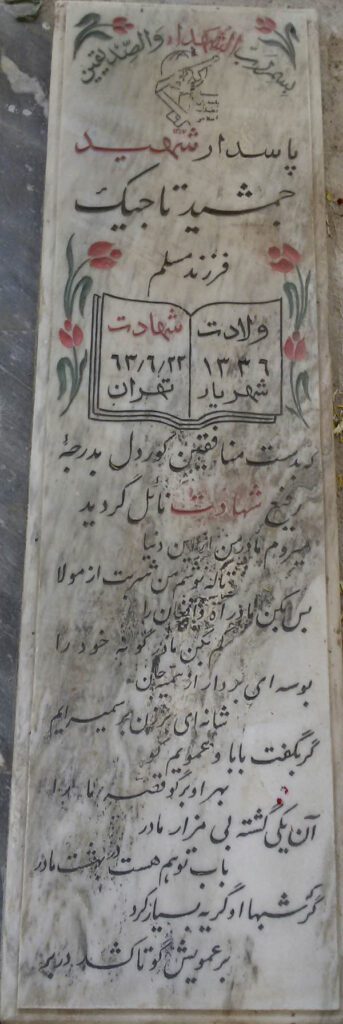 بسم رب الشهداء والصدیقین
پاسدار شهید
جمشید تاجیک
فرزند مسلم
ولادت
۱۳۳۶
شهریار
شهادت
۶۳/۶/۲۲
تهران
بدست منافقین کوردل بدرجهٔ
رفیع شهادت نائل گردید
میروم مادر من از این دنیا
تا که نوشم من شربت از مولا
بس کن مادر آه و افغان را
کم بکن مادر گونه خود را
بوسه ای بردار از
شانه ای بر زن بر سمیرایم
گر بگفت بابا و عمویم کو
بهر او برگو قصه ما را
آن یکی گشته بی مزار مادر
باب تو هم هست در بهشت مادر
گر که شبها او گریه بسیار کرد
بر عمویش گو تا کشد در بر